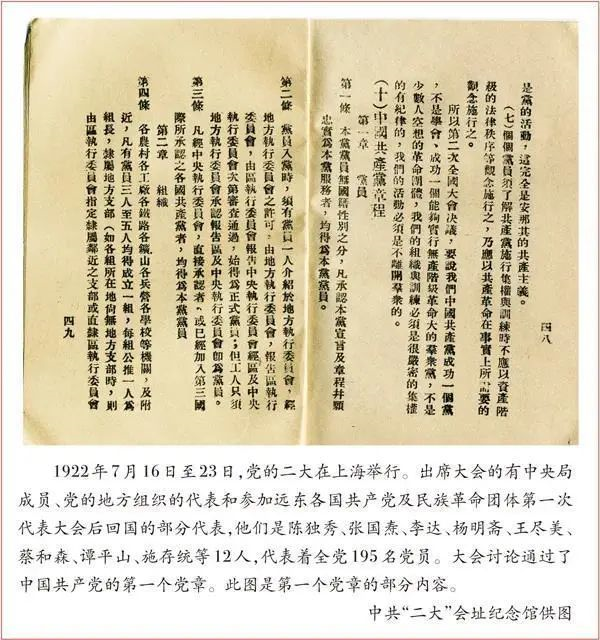 是黨的活動，這完全是安那其的共產主義。
(七) 個個黨員須了解共產黨施行集權與訓練時不應以資產階
級的法律秩序等觀念施行之，乃應以共產革命在事實上所需要的
觀念施行之。
所以第二次全國大會決議，要說我們中國共產黨成功一個黨
，不是學會、成功一個能夠實行無產階級革命大的羣衆黨，不是
少數人空想的革命團體，我們的組織與訓練必須是很嚴密的集權
的有紀律的，我們的活動必須是不離開羣衆的。
(十) 中國共產黨章程
第一章 黨員
第一條 本黨黨員無國籍性別之分，凡承認本黨宣言及章程幷願
忠實爲本黨服務者，均得爲本黨黨員。
四八
第二條 黨員入黨時，須有黨員一人介紹於地方執行委員會，經
地方執行委員會之許可，由地方執行委員會，報告區執行
委員會，由區執行委員會報告中央執行委員會經區及中央
執行委員會次第審查通過，始得爲正式黨員；但工人只須
地方執行委員會承認報告區及中央執行委員會卽爲黨員。
第三條 凡經中央執行委員會，直接承認者、或已經加入第三國
際所承認之各國共產黨者，均得爲本黨黨員
第二章 組織
第四條 各農村各工廠各鐵路各鑛山各兵營各學校等機關，及附
近，凡有黨員三人至五人均得成立一組，每組公推一人爲
組長，隸屬地方支部（如各組所在地尙無地方支部時，則
由區執行委員會指定隸屬鄰近之支部或直隸區執行委員會
四九
1922年7月16日至23日,党的二大在上海举行。出席大会的有中央局
成员、党的地方组织的代表和参加远东各国共产党及民族革命团体第一次
代表大会后回国的部分代表,他们是陈独秀、张国焘、李达、杨明斋、王尽美、
蔡和森、谭平山、施存统等12人,代表着全党195名党员。大会讨论通过了
中国共产党的第一个党章。此图是第一个党章的部分内容。
中共“二大”会址纪念馆供图